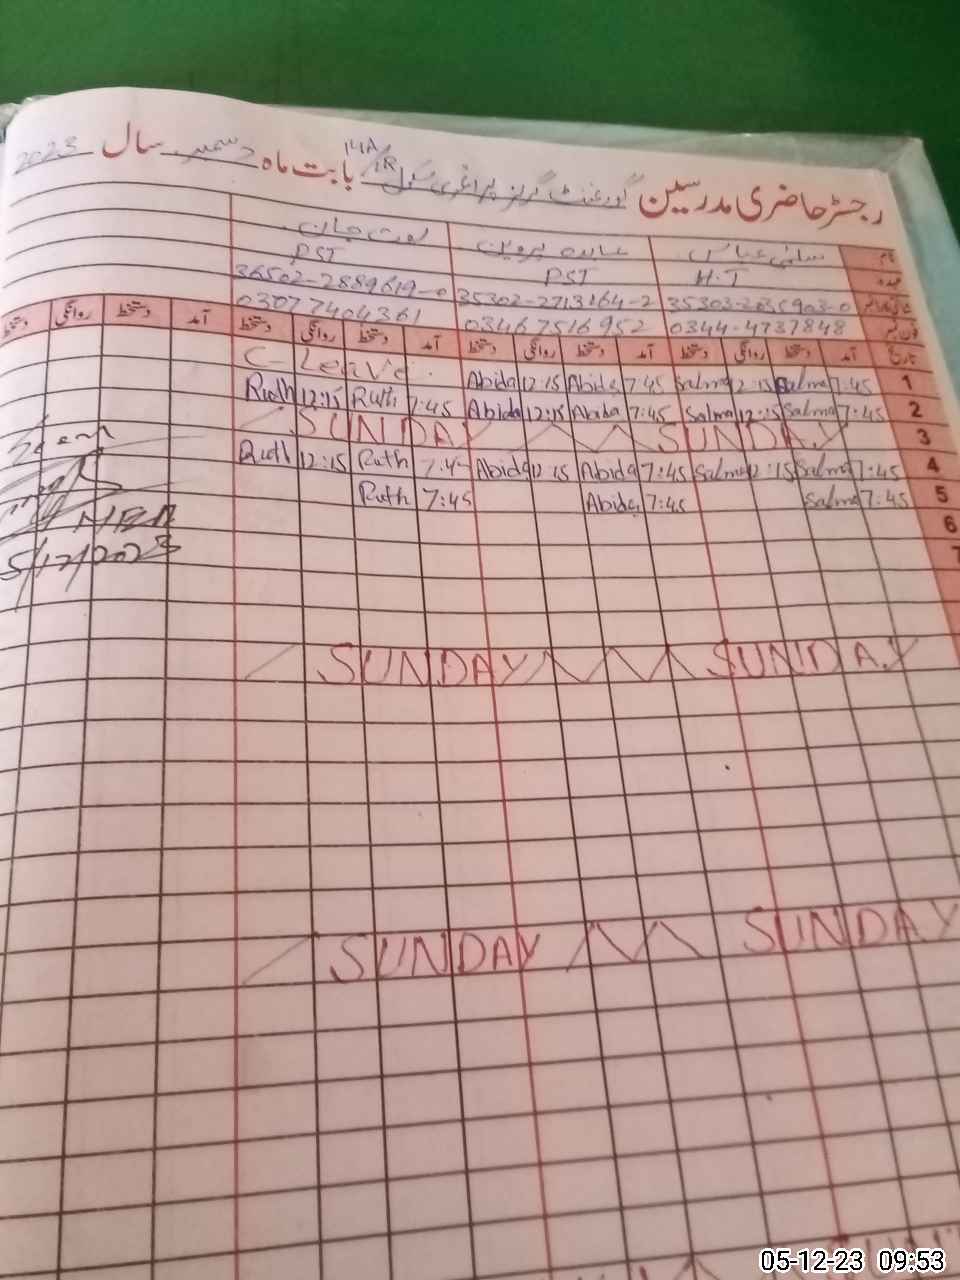 رجسٹر حاضری مدرسین گورنمنٹ گرلز پرائمری سکول 14A/1R بابت ماہ دسمبر سال 2023
نام سلمیٰ عباس عابدہ پروین روت جان
عہدہ H.T PST PST
35302-2713164-2 36502-2889619-0
فون نمبر 0344-4737848 03467516952 03077404361
تاریخ آمد دستخط روانگی دستخط آمد دستخط روانگی دستخط آمد دستخط روانگی دستخط آمد دستخط روانگی دستخط
1 7:45 Salma 12:15 Salma 7:45 Abida 12:15 Abida C-Leave
2 7:45 Salma 12:15 Salma 7:45 Abida 12:15 Abida 7:45 Ruth 12:15 Ruth
3 SUNDAY SUNDAY
4 7:45 Salma 12:15 Salma 7:45 Abida 12:15 Abida 7:45 Ruth 12:15 Ruth
5 7:45 Salma 7:45 Abida 7:45 Ruth
6
7
5/12/2023
SUNDAY SUNDAY
SUNDAY SUNDAY
05-12-23 09:53